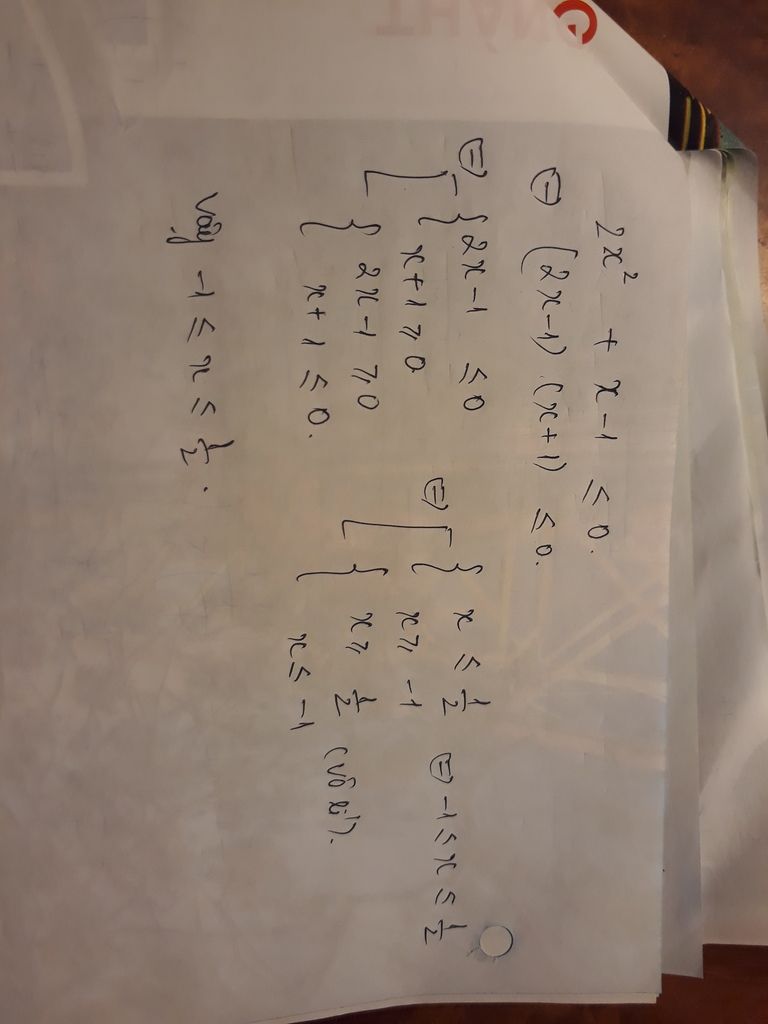 2x² + x - 1 ≤ 0.
⇔ (2x-1) (x+1) ≤ 0.
⇔ [ { 2x - 1 ≤ 0
x + 1 ≥ 0
{ 2x - 1 ≥ 0
x + 1 ≤ 0.
⇔ [ { x ≤ 1/2
x ≥ -1
⇔ -1 ≤ x ≤ 1/2
{ x ≥ 1/2
x ≤ -1
(vô lí).
Vậy -1 ≤ x ≤ 1/2.
THÀNG